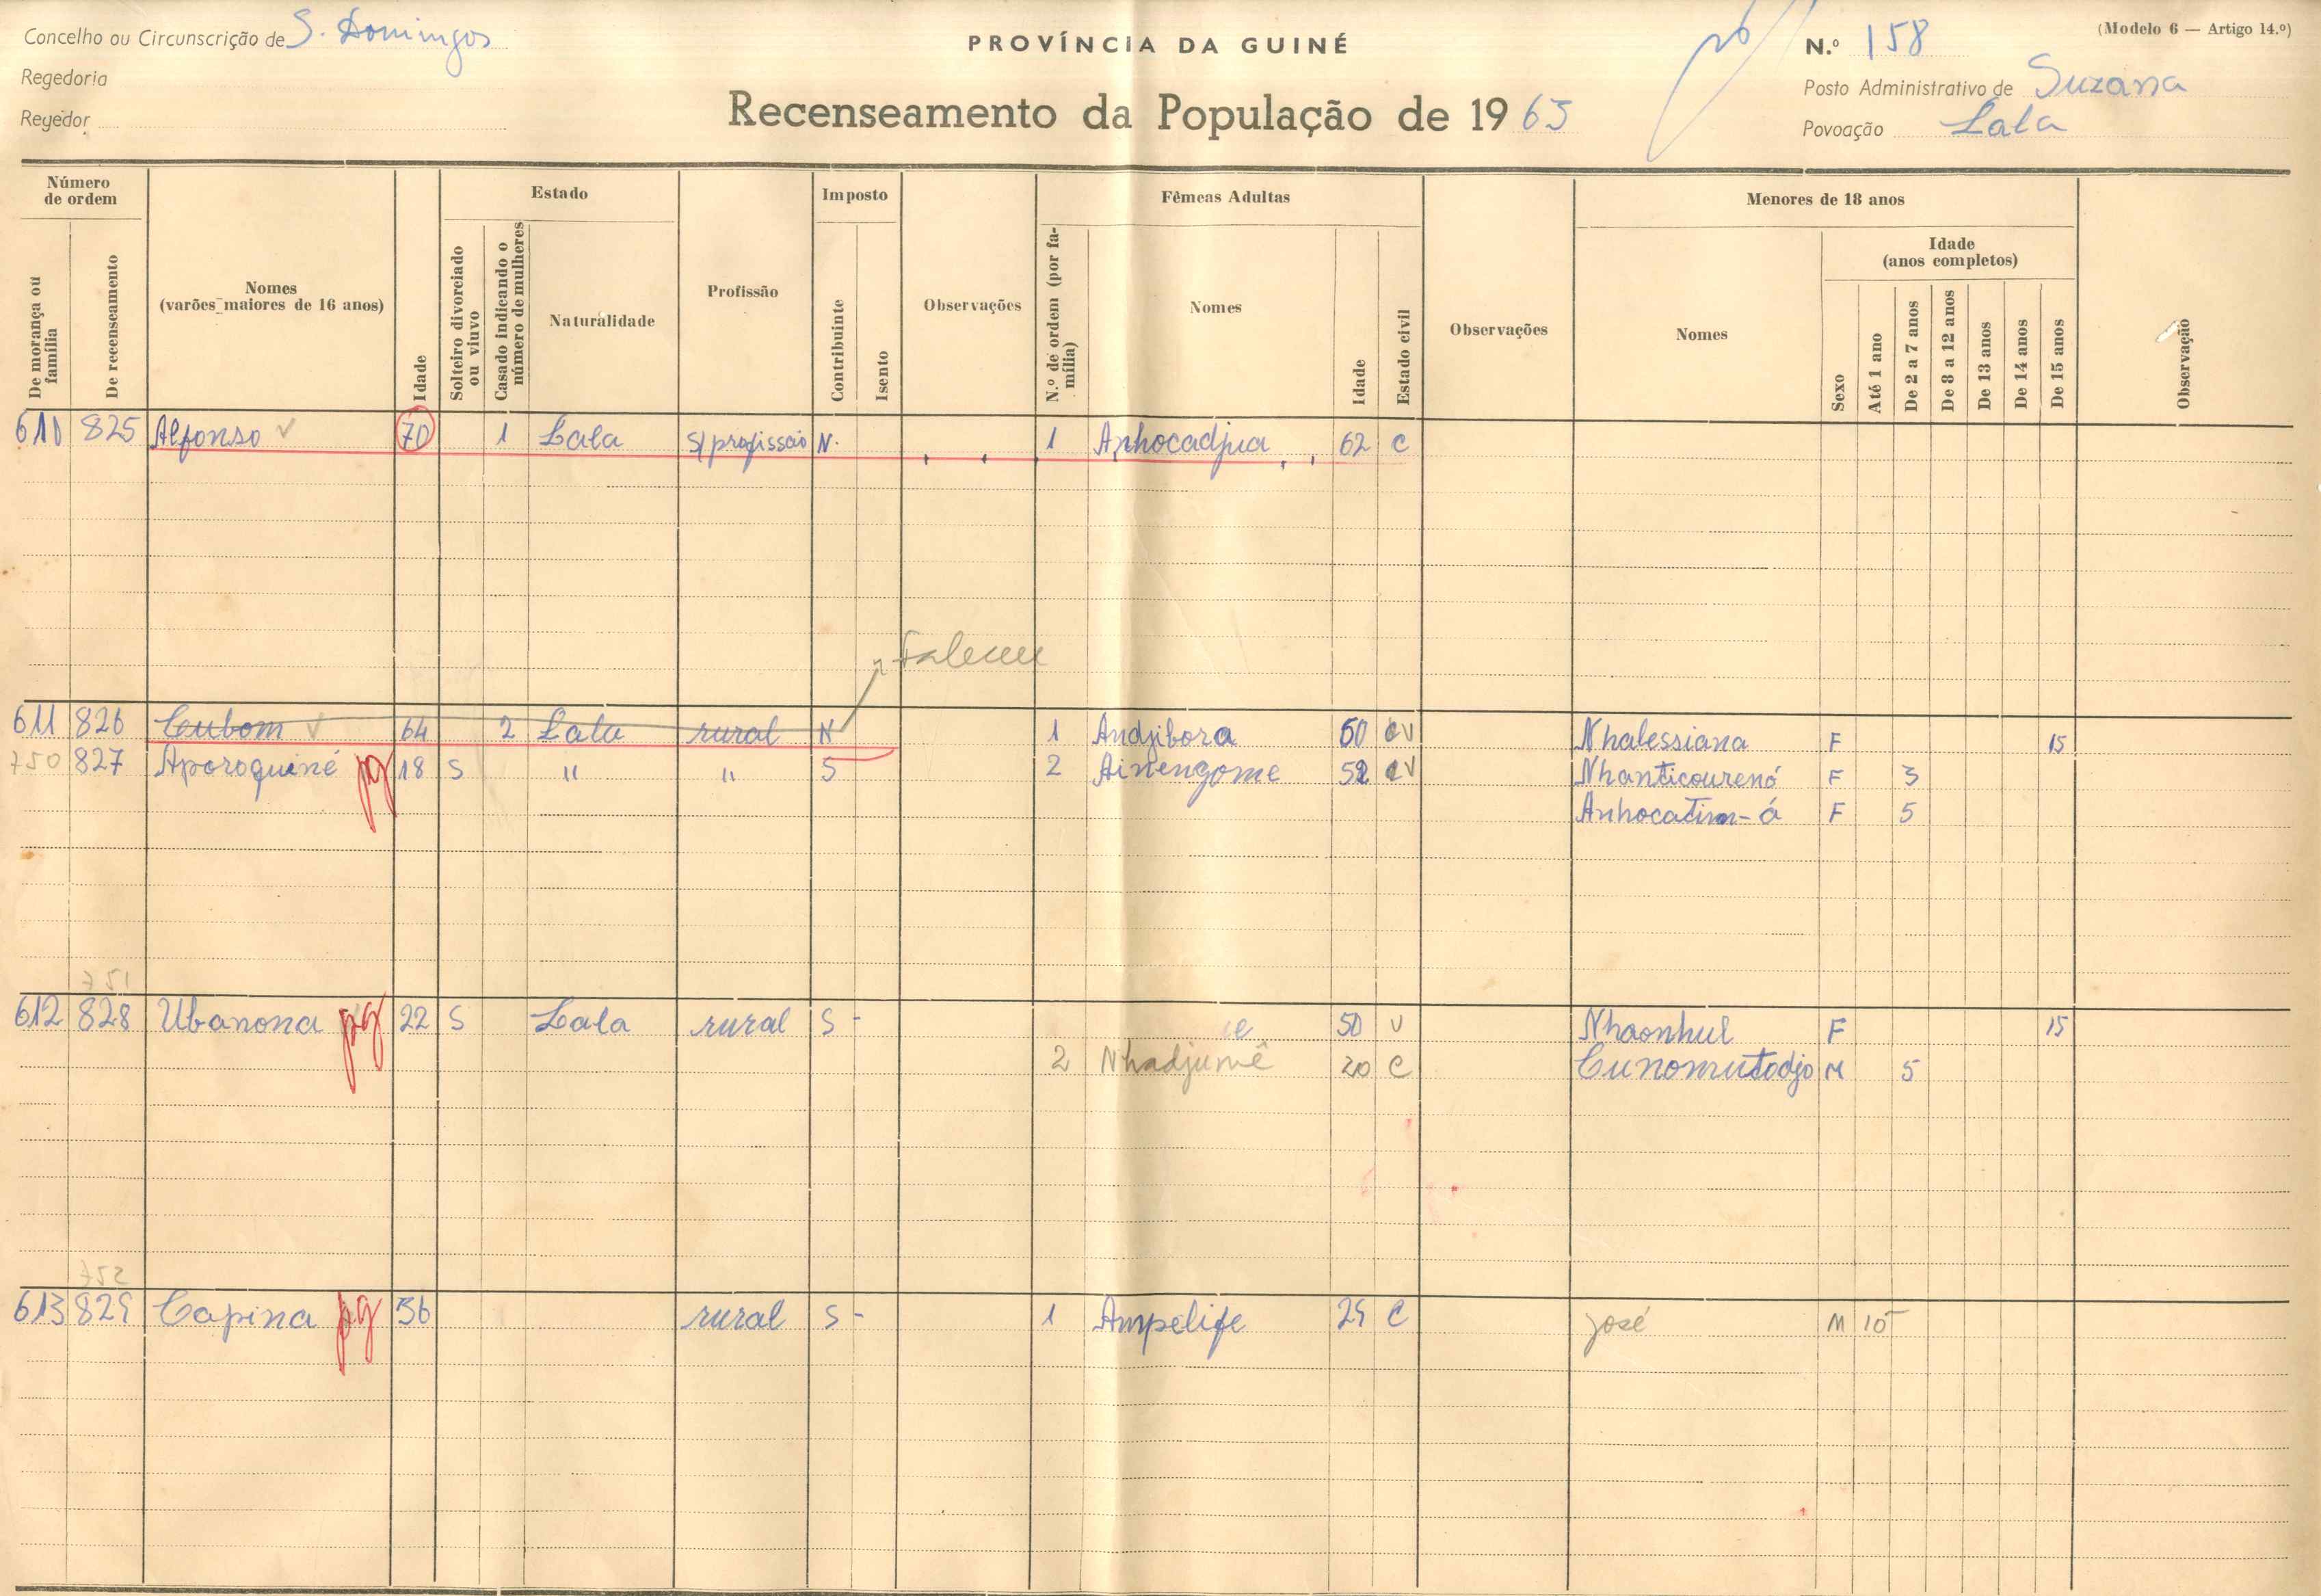 Concelho ou Circunscrição de S. Domingos
Regedoria
Regedor
PROVÍNCIA DA GUINÉ
Recenseamento da População de 1963
(Modelo 6 — Artigo 14.º)
N.º 158
Posto Administrativo de Suzana
Povoação Lala
Número de ordem
De morança ou família
De recenseamento
Nomes
(varões maiores de 16 anos)
Idade
Estado
Solteiro divorciado ou viuvo
Casado indicando o número de mulheres
Naturalidade
Profissão
Imposto
Contribuinte
Isento
Observações
Fêmeas Adultas
N.º de ordem (por família)
Nomes
Idade
Estado civil
Observações
Menores de 18 anos
Nomes
Idade
(anos completos)
Sexo
Até 1 ano
De 2 a 7 anos
De 8 a 12 anos
De 13 anos
De 14 anos
De 15 anos
Observação
610 825 Alfonso 70 1 Lala S/profissão N. 1 Anhocadjua 62 C
Faleceu
611 826 Cubom 64 2 Lala rural N 1 Andjibora 60 V Nhalessiana F 15
750 827 Aporoquiné pg 18 S " " S 2 Ainengome 52 V Nhanticourenó F 3
Anhocatim-á F 5
751
612 828 Ubanona pg 22 S Lala rural S - 50 V Nhaonhul F 15
2 Nhadjumê 20 C Cunomutodjo M 5
752
613 829 Capina pg 36 rural S - 1 Ampelife 29 C José M 10